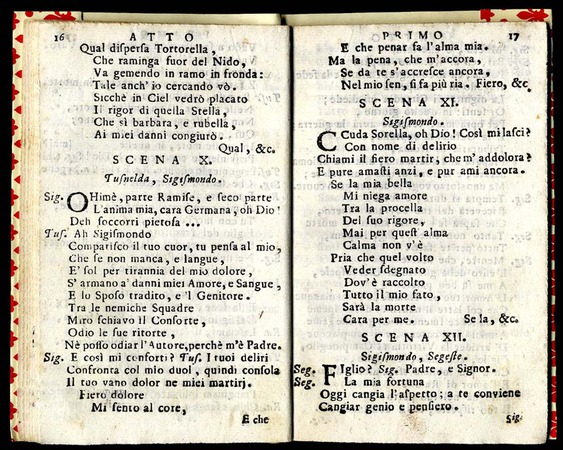 16 ATTO
Qual dispersa Tortorella,
Che raminga fuor del Nido,
Va gemendo in ramo in fronda:
Tale anch' io cercando vò.
Sicchè in Ciel vedrò placato
Il rigor di quella Stella,
Che sì barbara, e rubella,
Ai miei danni congiurò.
Qual, &c.
SCENA X.
Tusnelda, Sigismondo.
Sig. OHimè, parte Ramise, e seco parte
L'anima mia, cara Germana, oh Dio!
Deh soccorri pietosa ...
Tus. Ah Sigismondo
Compatisco il tuo cuor, tu pensa al mio,
Che se non manca, e langue,
E' sol per tirannia del mio dolore,
S' armano a' danni miei Amore, e Sangue,
E lo Sposo tradito, e 'l Genitore.
Tra le nemiche Squadre
Miro schiavo il Consorte,
Odio le sue ritorte,
Nè posso odiar l'Autore, perchè m'è Padre.
Sig. E così mi conforti? Tus. I tuoi deliri
Confronta col mio duol, quindi consola
Il tuo vano dolor ne miei martirj.
Fiero dolore
Mi sento al core,
E che
PRIMO 17
E che penar fa l'alma mia.
Ma la pena, che m'accora,
Se da te s'accresce ancora,
Nel mio sen, si fa più ria. Fiero, &c.
SCENA XI.
Sigismondo.
CCuda Sorella, oh Dio! Così mi lasci?
Con nome di delirio
Chiami il fiero martir, che m' addolora?
E pure amasti anzi, e pur ami ancora.
Se la mia bella
Mi niega amore
Tra la procella
Del suo rigore,
Mai per quest alma
Calma non v'è
Pria che quel volto
Veder sdegnato
Dov' è raccolto
Tutto il mio fato,
Sarà la morte
Cara per me. Se la, &c.
SCENA XII.
Sigismondo, Segeste.
Seg. FIglio? Sig. Padre, e Signor.
Seg. La mia fortuna
Oggi cangia l'aspetto; a te conviene
Cangiar genio e pensiero.
Sig.